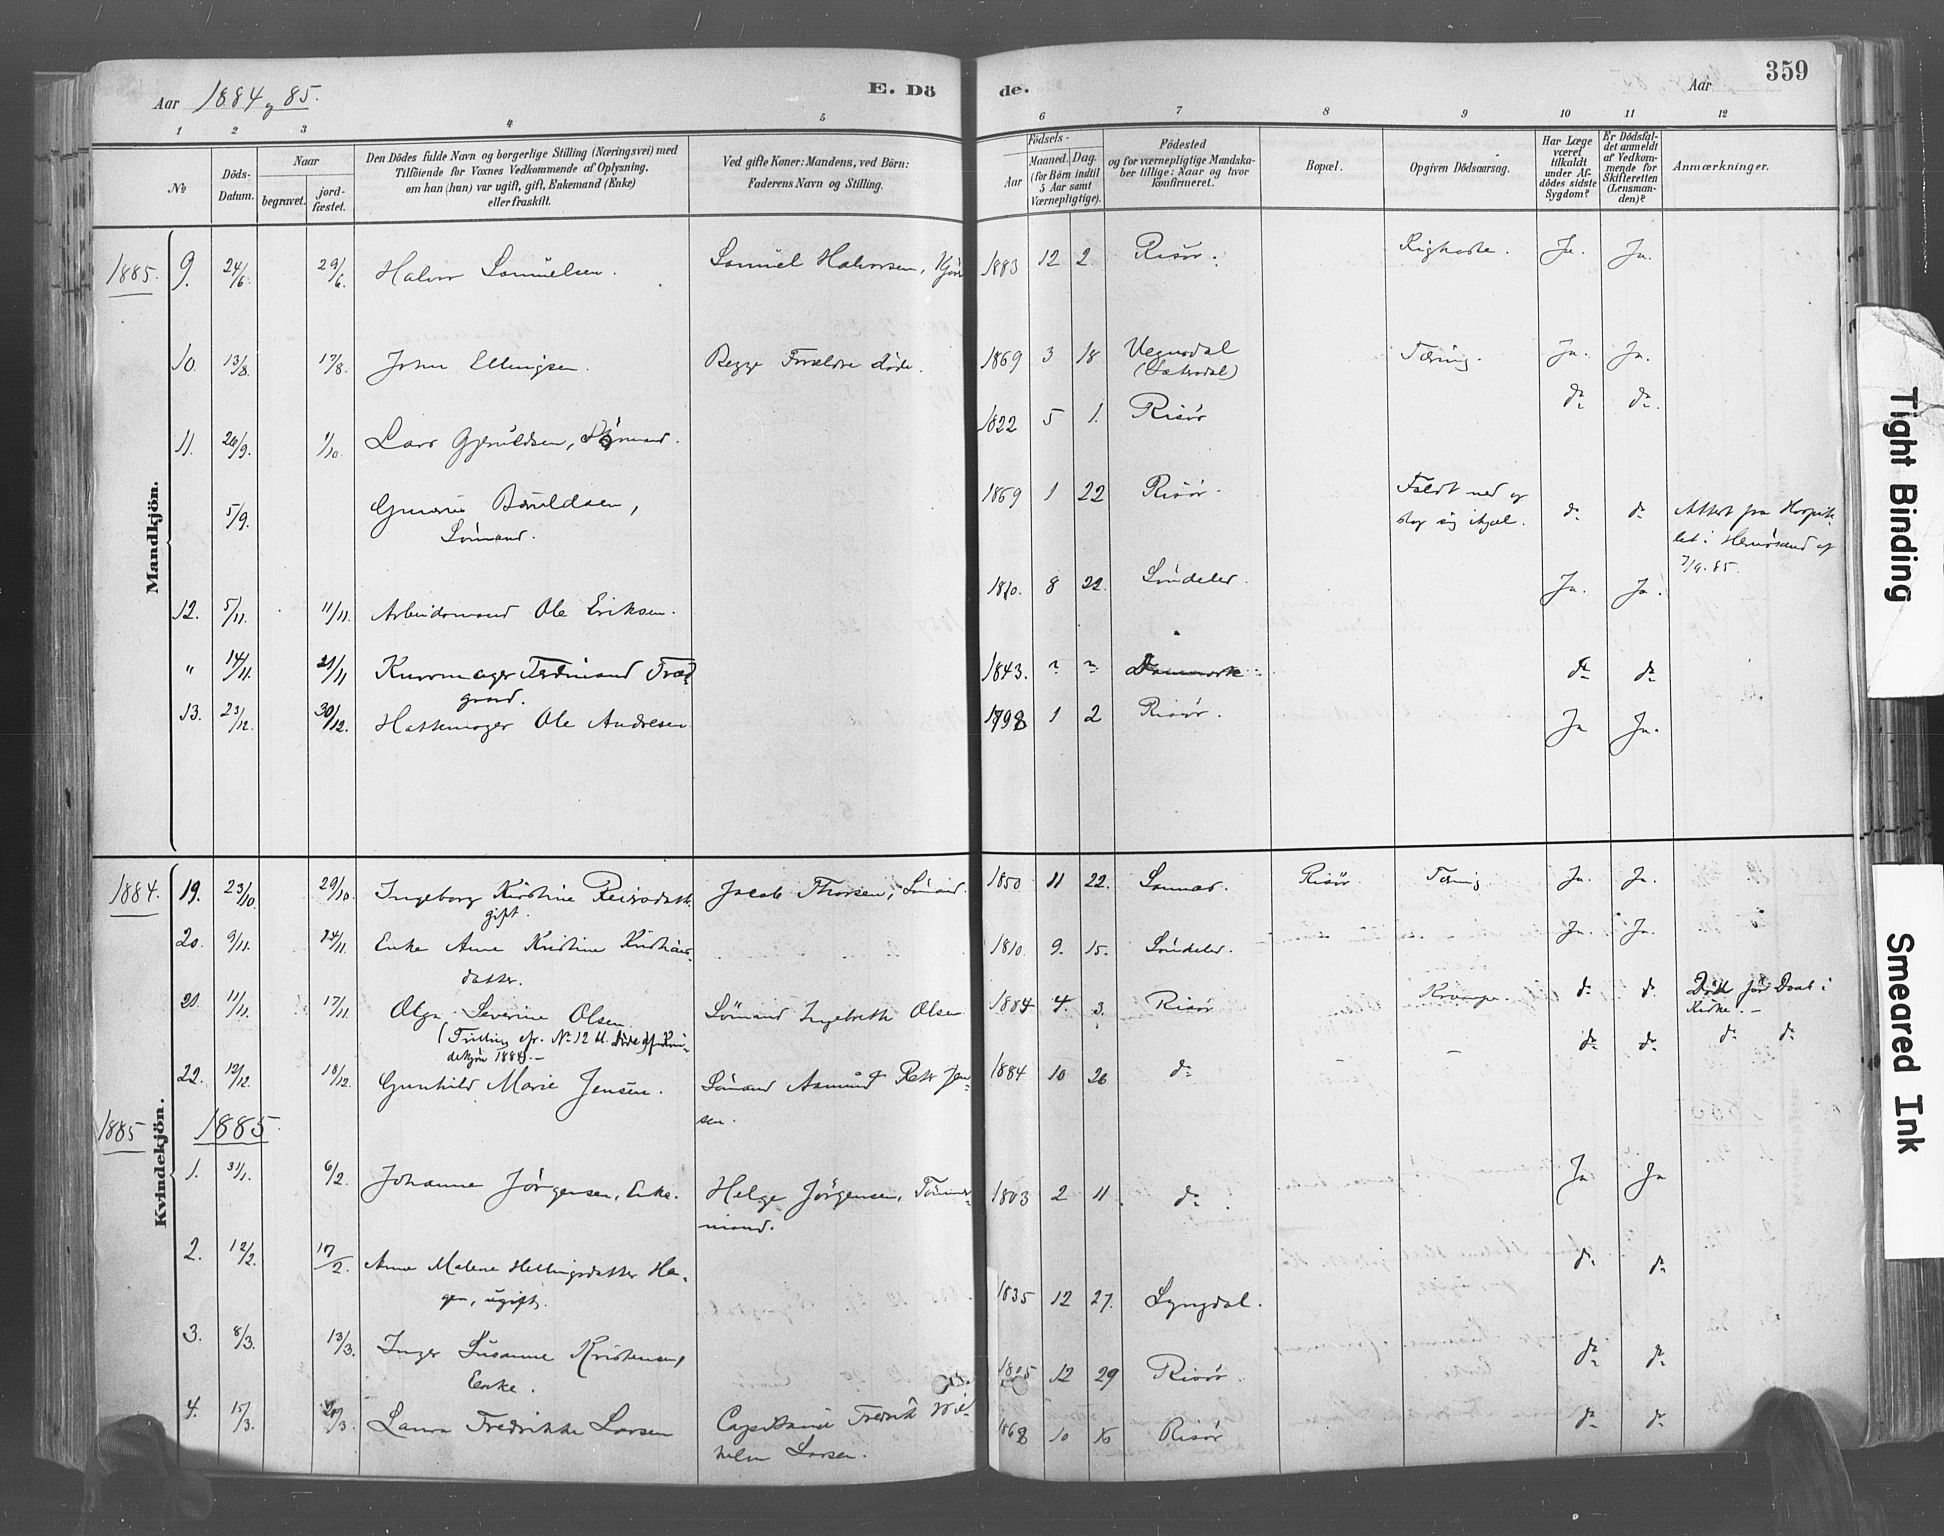 Aar 1884 og 85.
E. Dö
de.
Aar
359
1 2 3 4 5 6 7 8 9 10 11 12
No
Döds-
Datum.
Naar
begravet.
jord-
fæstet.
Den Dödes fulde Navn og borgerlige Stilling (Næringsvei) med
Tilföiende for Voxnes Vedkommende af Oplysning,
om han (hun) var ugift, gift, Enkemand (Enke)
eller fraskilt.
Ved gifte Koner: Mandens, ved Börn:
Faderens Navn og Stilling.
Födsels-
Aar
Maaned. Dag.
(for Börn indtil
5 Aar samt
Værnepligtige).
Födested
og for værnepligtige Mandska-
ber tillige: Naar og hvor
konfirmeret.
Bopæl.
Opgiven Dödsaarsag.
Har Læge
været
tilkaldt
under Af-
dödes sidste
Sygdom?
Er Dödsfal-
det anmeldt
af Vedkom-
mende for
Skifteretten
(Lensman-
den)?
Anmærkninger.
Mandkjön.
1885. 9. 24/6. 29/6. Halvor Samuelsen. Samuel Halvorsen, 1883 12 2. Risör. Ja. Ja.
10. 13/8. 17/8. John Ellingsen. Begge Forældre døde. 1869 3 18 Vegusdal Tæring. Ja. Ja.
(Sætersdal)
11. 26/9. 1/10. Lars Gjeruldsen, Sömand. 1822 5 1. Risör do do.
5/9. Baruldsen, 1869 1 22 Risör. Faldt ned og do do Attest fra Hospita-
Sömand. slog sig ihjel. let i Hernösand af
7/9. 85.
12. 5/11. 11/11. Arbeidsmand Ole Eriksen. 1820. 8 22. Söndeled. Ja. Ja.
" 14/11. 21/11 Ferdinand 1843. ? ? Danmark. do do
13. 23/12. 30/12. Hattemager Ole Andresen 1798 1 2 Risör. Ja Ja.
Kvindekjön.
1884. 19. 23/10. 29/10. Ingeborg Kirstine gift. Jacob Thorsen, Sömand. 1850 11 22. Risör. Tæring Ja. Ja.
20. 9/11. 14/11. Enke Anne Kristine Kristians- 1810 9. 15. Söndeled. Ja. Ja.
datter.
21. 11/11. 17/11. Olga Severine Olsen Sömand Ingebreth Olsen 1884 4. 3. Risör Krampe. do do Död før Daab i
(Tvilling cfr. No 12 bl. döde af Kvin- Kirke. -
dekjön 1884). -
22. 12/12. 18/12. Gunhild Marie Jensen. Sömand Asmund Jen- 1884 10 26 do do do do do
sen.
1885 1885
1. 31/1. 6/2. Johanne Jörgensen, Enke. Helge Jörgensen, Tömmer- 1803 2 11. do. Ja Ja
mand.
2. 12/2. 17/2. Anne Malene Hellingsdatter Ha- 1835 12 27. Lyngdal. do do
gen, ugift.
3. 8/3. 13/3. Inger Susanne Kristensen, 12 29 Risör. do do
Enke.
4. 15/3. 20/3. Laura Fredrikke Larsen Capitaine Fredrik Wil- 1868 10 16 Risör do do
helm Larsen.
Tight Binding
Smeared Ink